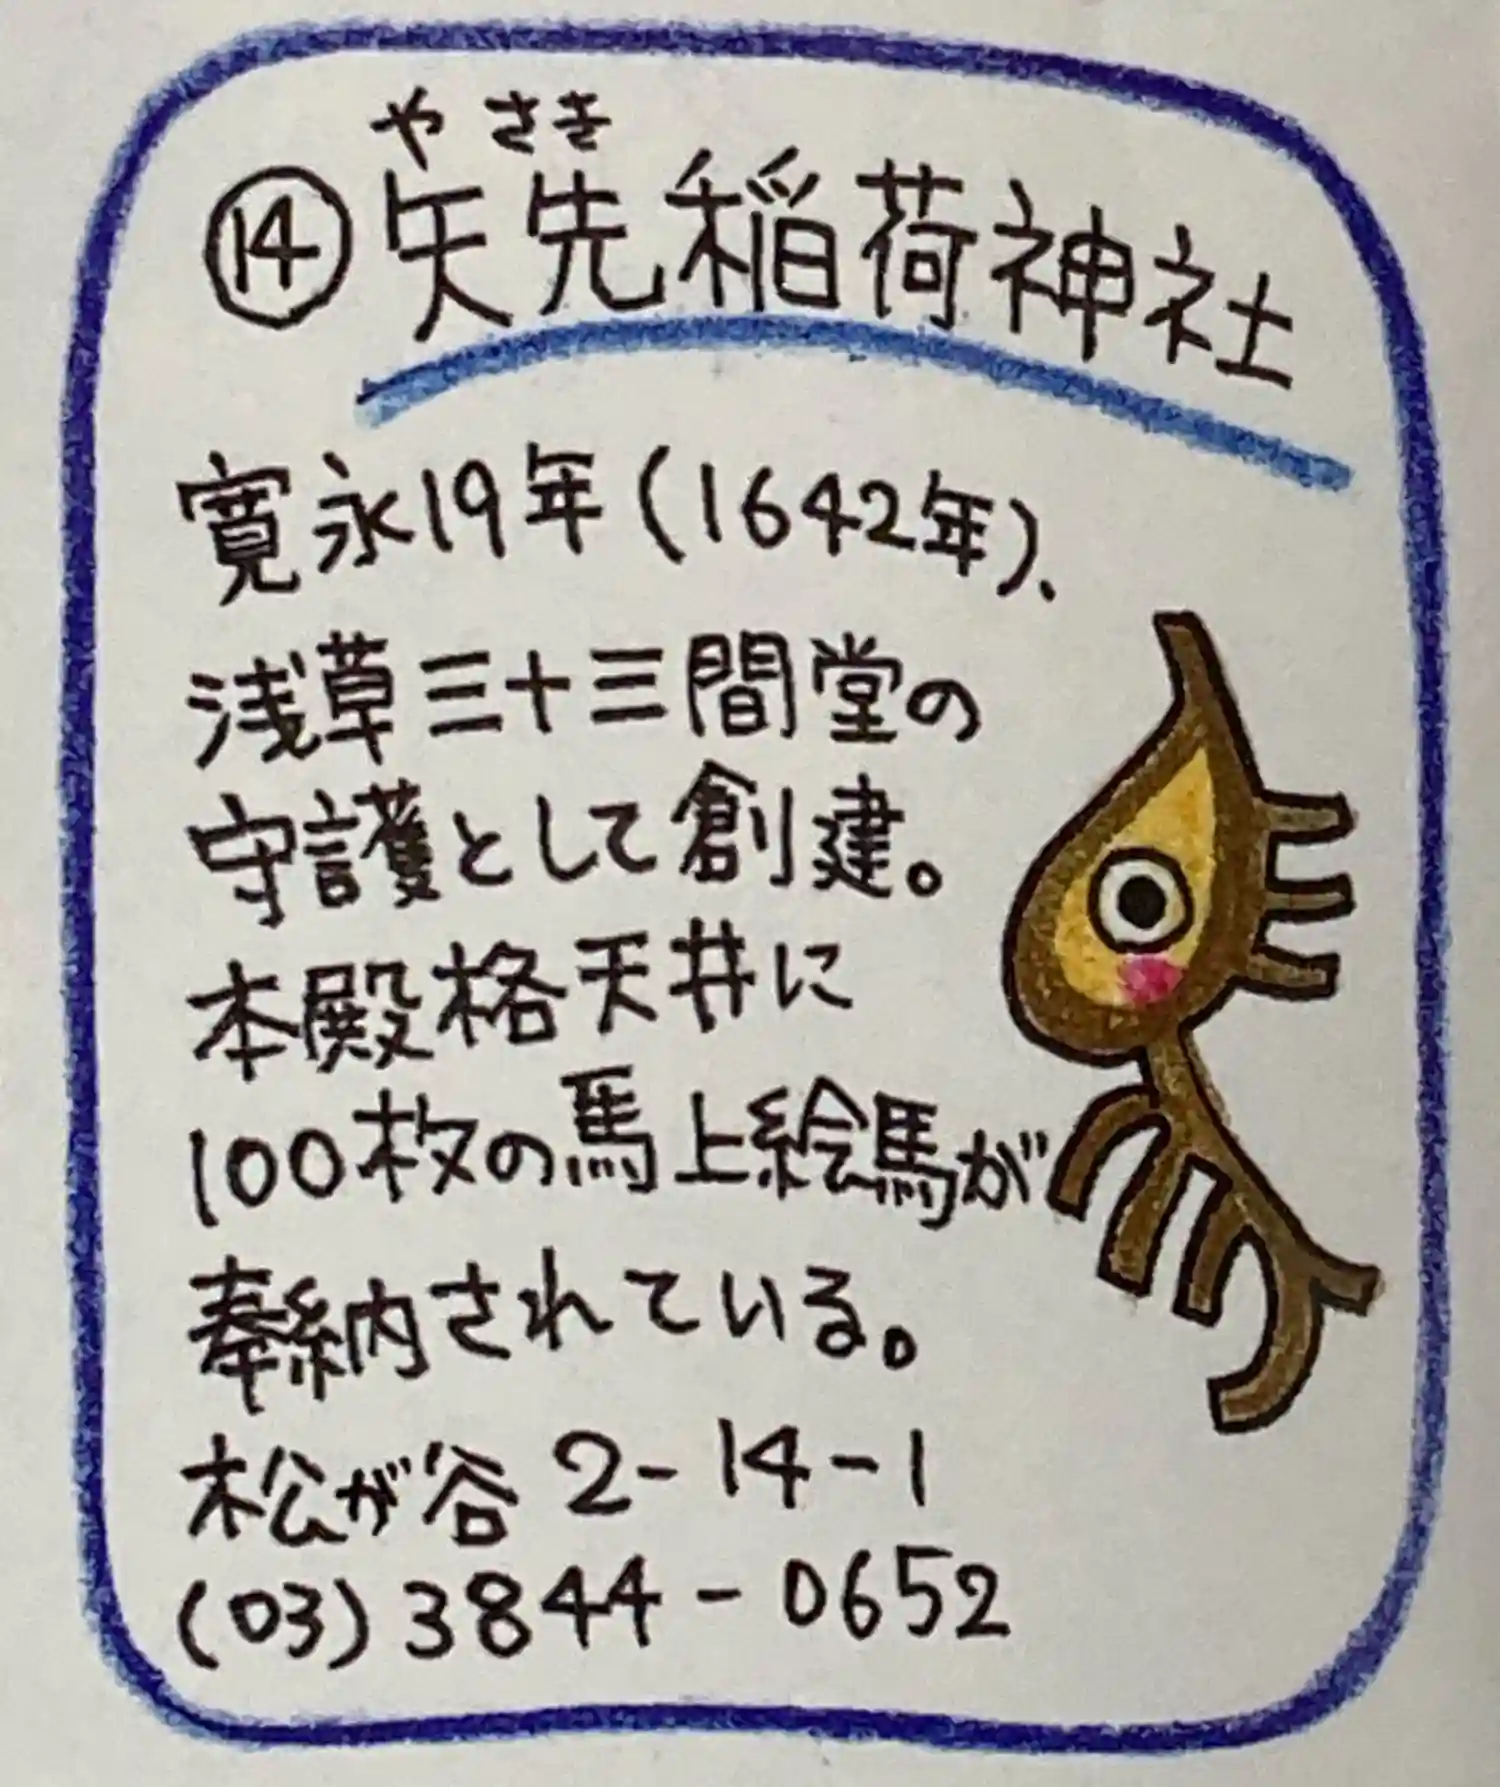 やさき
⑭矢先稲荷神社
寛永19年(1642年)、
浅草三十三間堂の
守護として創建。
本殿格天井に
100枚の馬上絵馬が
奉納されている。
松が谷 2-14-1
(03)3844-0652